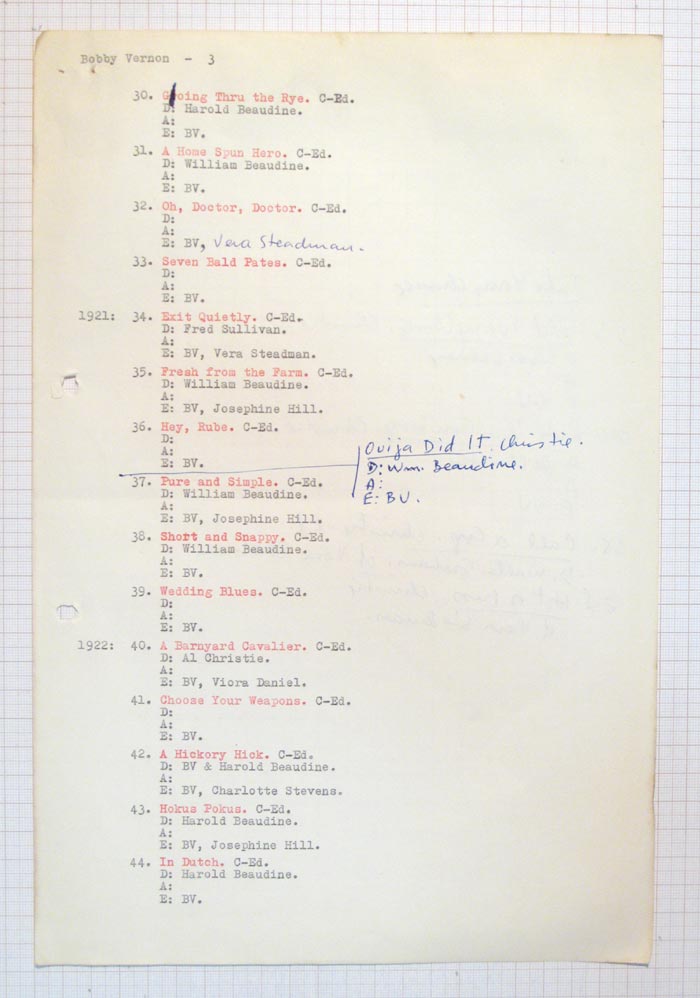 Bobby Vernon - 3
30. Going Thru the Rye. C-Ed.
D: Harold Beaudine.
A:
E: BV.
31. A Home Spun Hero. C-Ed.
D: William Beaudine.
A:
E: BV.
32. Oh, Doctor, Doctor. C-Ed.
D:
A:
E: BV, Vera Steadman.
33. Seven Bald Pates. C-Ed.
D:
A:
E: BV.
1921: 34. Exit Quietly. C-Ed.
D: Fred Sullivan.
A:
E: BV, Vera Steadman.
35. Fresh from the Farm. C-Ed.
D: William Beaudine.
A:
E: BV, Josephine Hill.
36. Hey, Rube. C-Ed.
D:
A:
E: BV.
Ouija Did It. Christie.
D: Wm. Beaudine.
A:
E: BV.
37. Pure and Simple. C-Ed.
D: William Beaudine.
A:
E: BV, Josephine Hill.
38. Short and Snappy. C-Ed.
D: William Beaudine.
A:
E: BV.
39. Wedding Blues. C-Ed.
D:
A:
E: BV.
1922: 40. A Barnyard Cavalier. C-Ed.
D: Al Christie.
A:
E: BV, Viora Daniel.
41. Choose Your Weapons. C-Ed.
D:
A:
E: BV.
42. A Hickory Hick. C-Ed.
D: BV & Harold Beaudine.
A:
E: BV, Charlotte Stevens.
43. Hokus Pokus. C-Ed.
D: Harold Beaudine.
A:
E: BV, Josephine Hill.
44. In Dutch. C-Ed.
D: Harold Beaudine.
A:
E: BV.